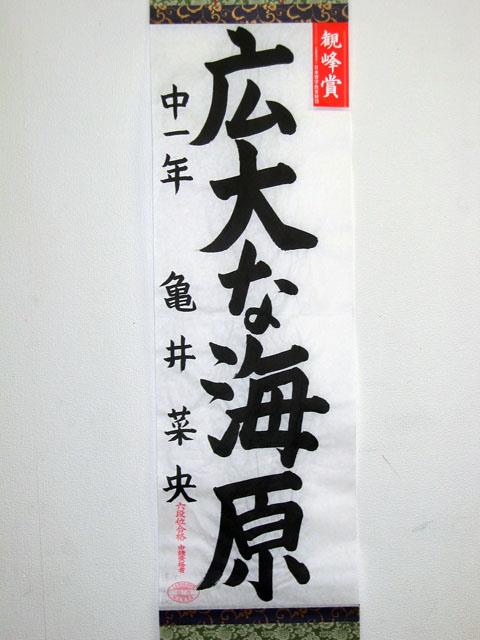 観峰賞
広大な海原
中一年 亀井菜央
六段位合格